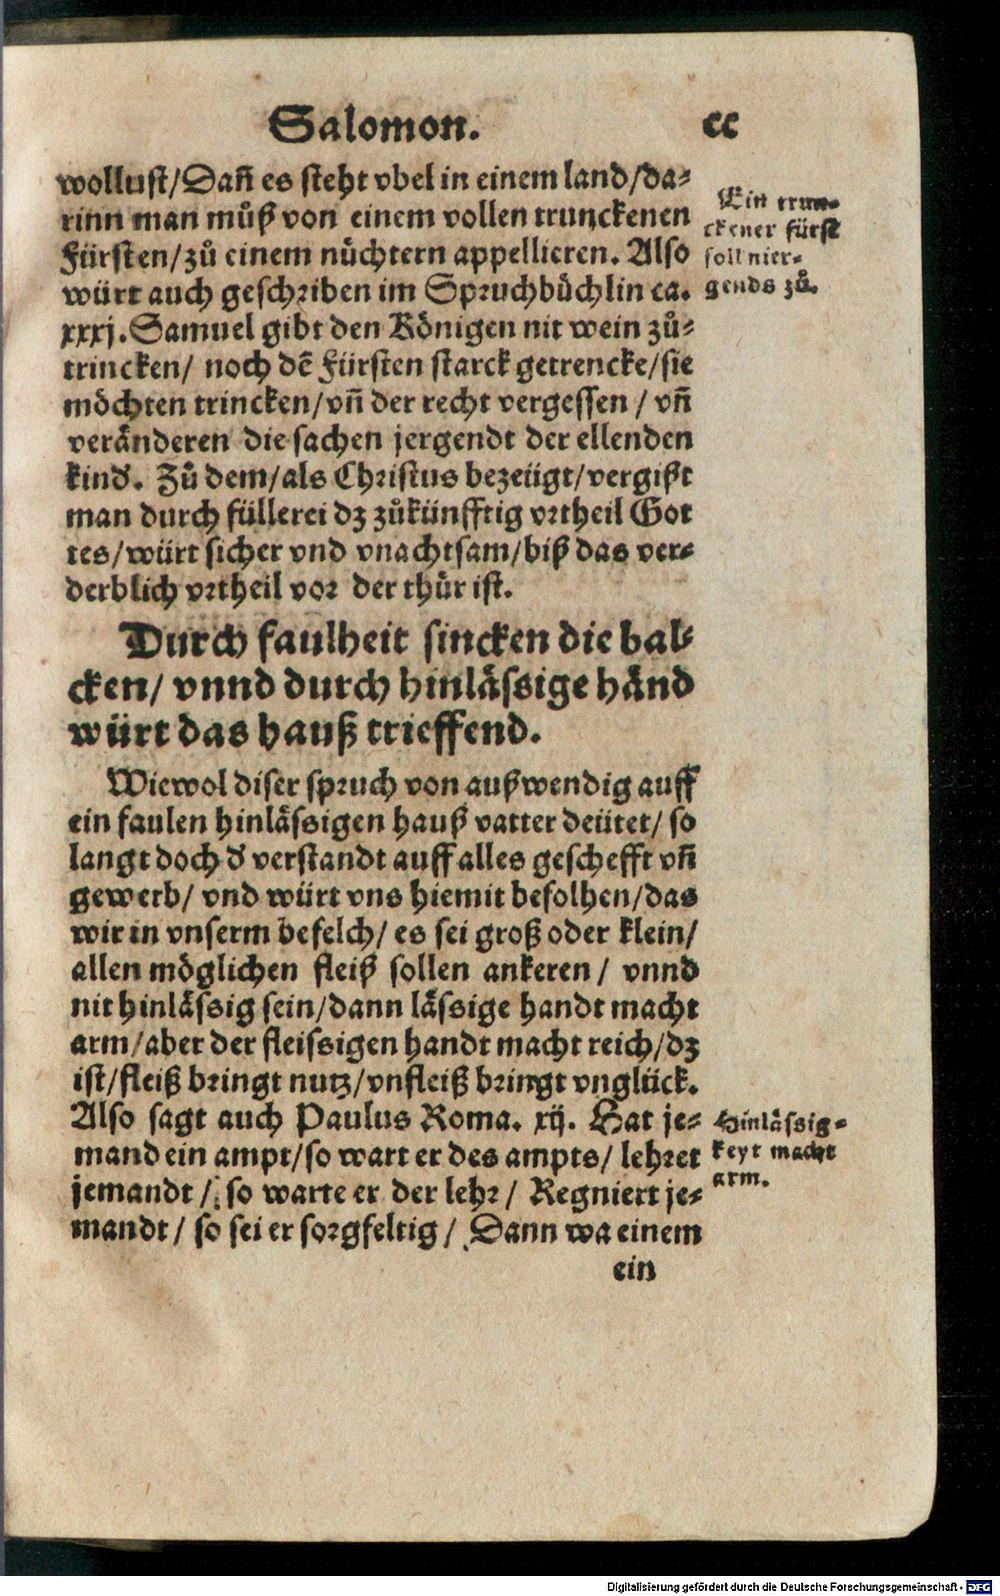 Salomon. cc
wollust/Dañ es steht vbel in einem land/da-
rinn man můß von einem vollen trunckenen
Fürsten/zů einem nüchtern appellieren. Also
würt auch geschriben im Spruchbüchlin ca.
xxxj. Samuel gibt den Königen nit wein zů-
trincken/ noch dẽ Fürsten starck getrencke/sie
möchten trincken/vñ der recht vergessen / vñ
veränderen die sachen jergendt der ellenden
kind. Zů dem/als Christus bezeügt/vergißt
man durch füllerei dz zůkünfftig vrtheil Got
tes/würt sicher vnd vnachtsam/biß das ver-
derblich vrtheil vor der thür ist.
Ein trun-
ckener fürst
soll nier-
gends zů.
Durch faulheit sincken die bal-
cken/ vnnd durch hinlässige händ
würt das hauß trieffend.
Wiewol diser spruch von außwendig auff
ein faulen hinlässigen hauß vatter deütet/ so
langt doch d' verstandt auff alles geschefft vñ
gewerb/ vnd würt vns hiemit befolhen/das
wir in vnserm befelch/ es sei groß oder klein/
allen möglichen fleiß sollen ankeren / vnnd
nit hinlässig sein/dann lässige handt macht
arm/aber der fleissigen handt macht reich/dz
ist/fleiß bringt nutz/vnfleiß bringt vnglück.
Also sagt auch Paulus Roma. xij. Hat je-
mand ein ampt/so wart er des ampts/ lehret
jemandt / so warte er der lehr / Regniert je-
mandt / so sei er sorgfeltig / Dann wa einem
Hinlässig-
keyt macht
arm.
ein
Digitalisierung gefördert durch die Deutsche Forschungsgemeinschaft - DFG